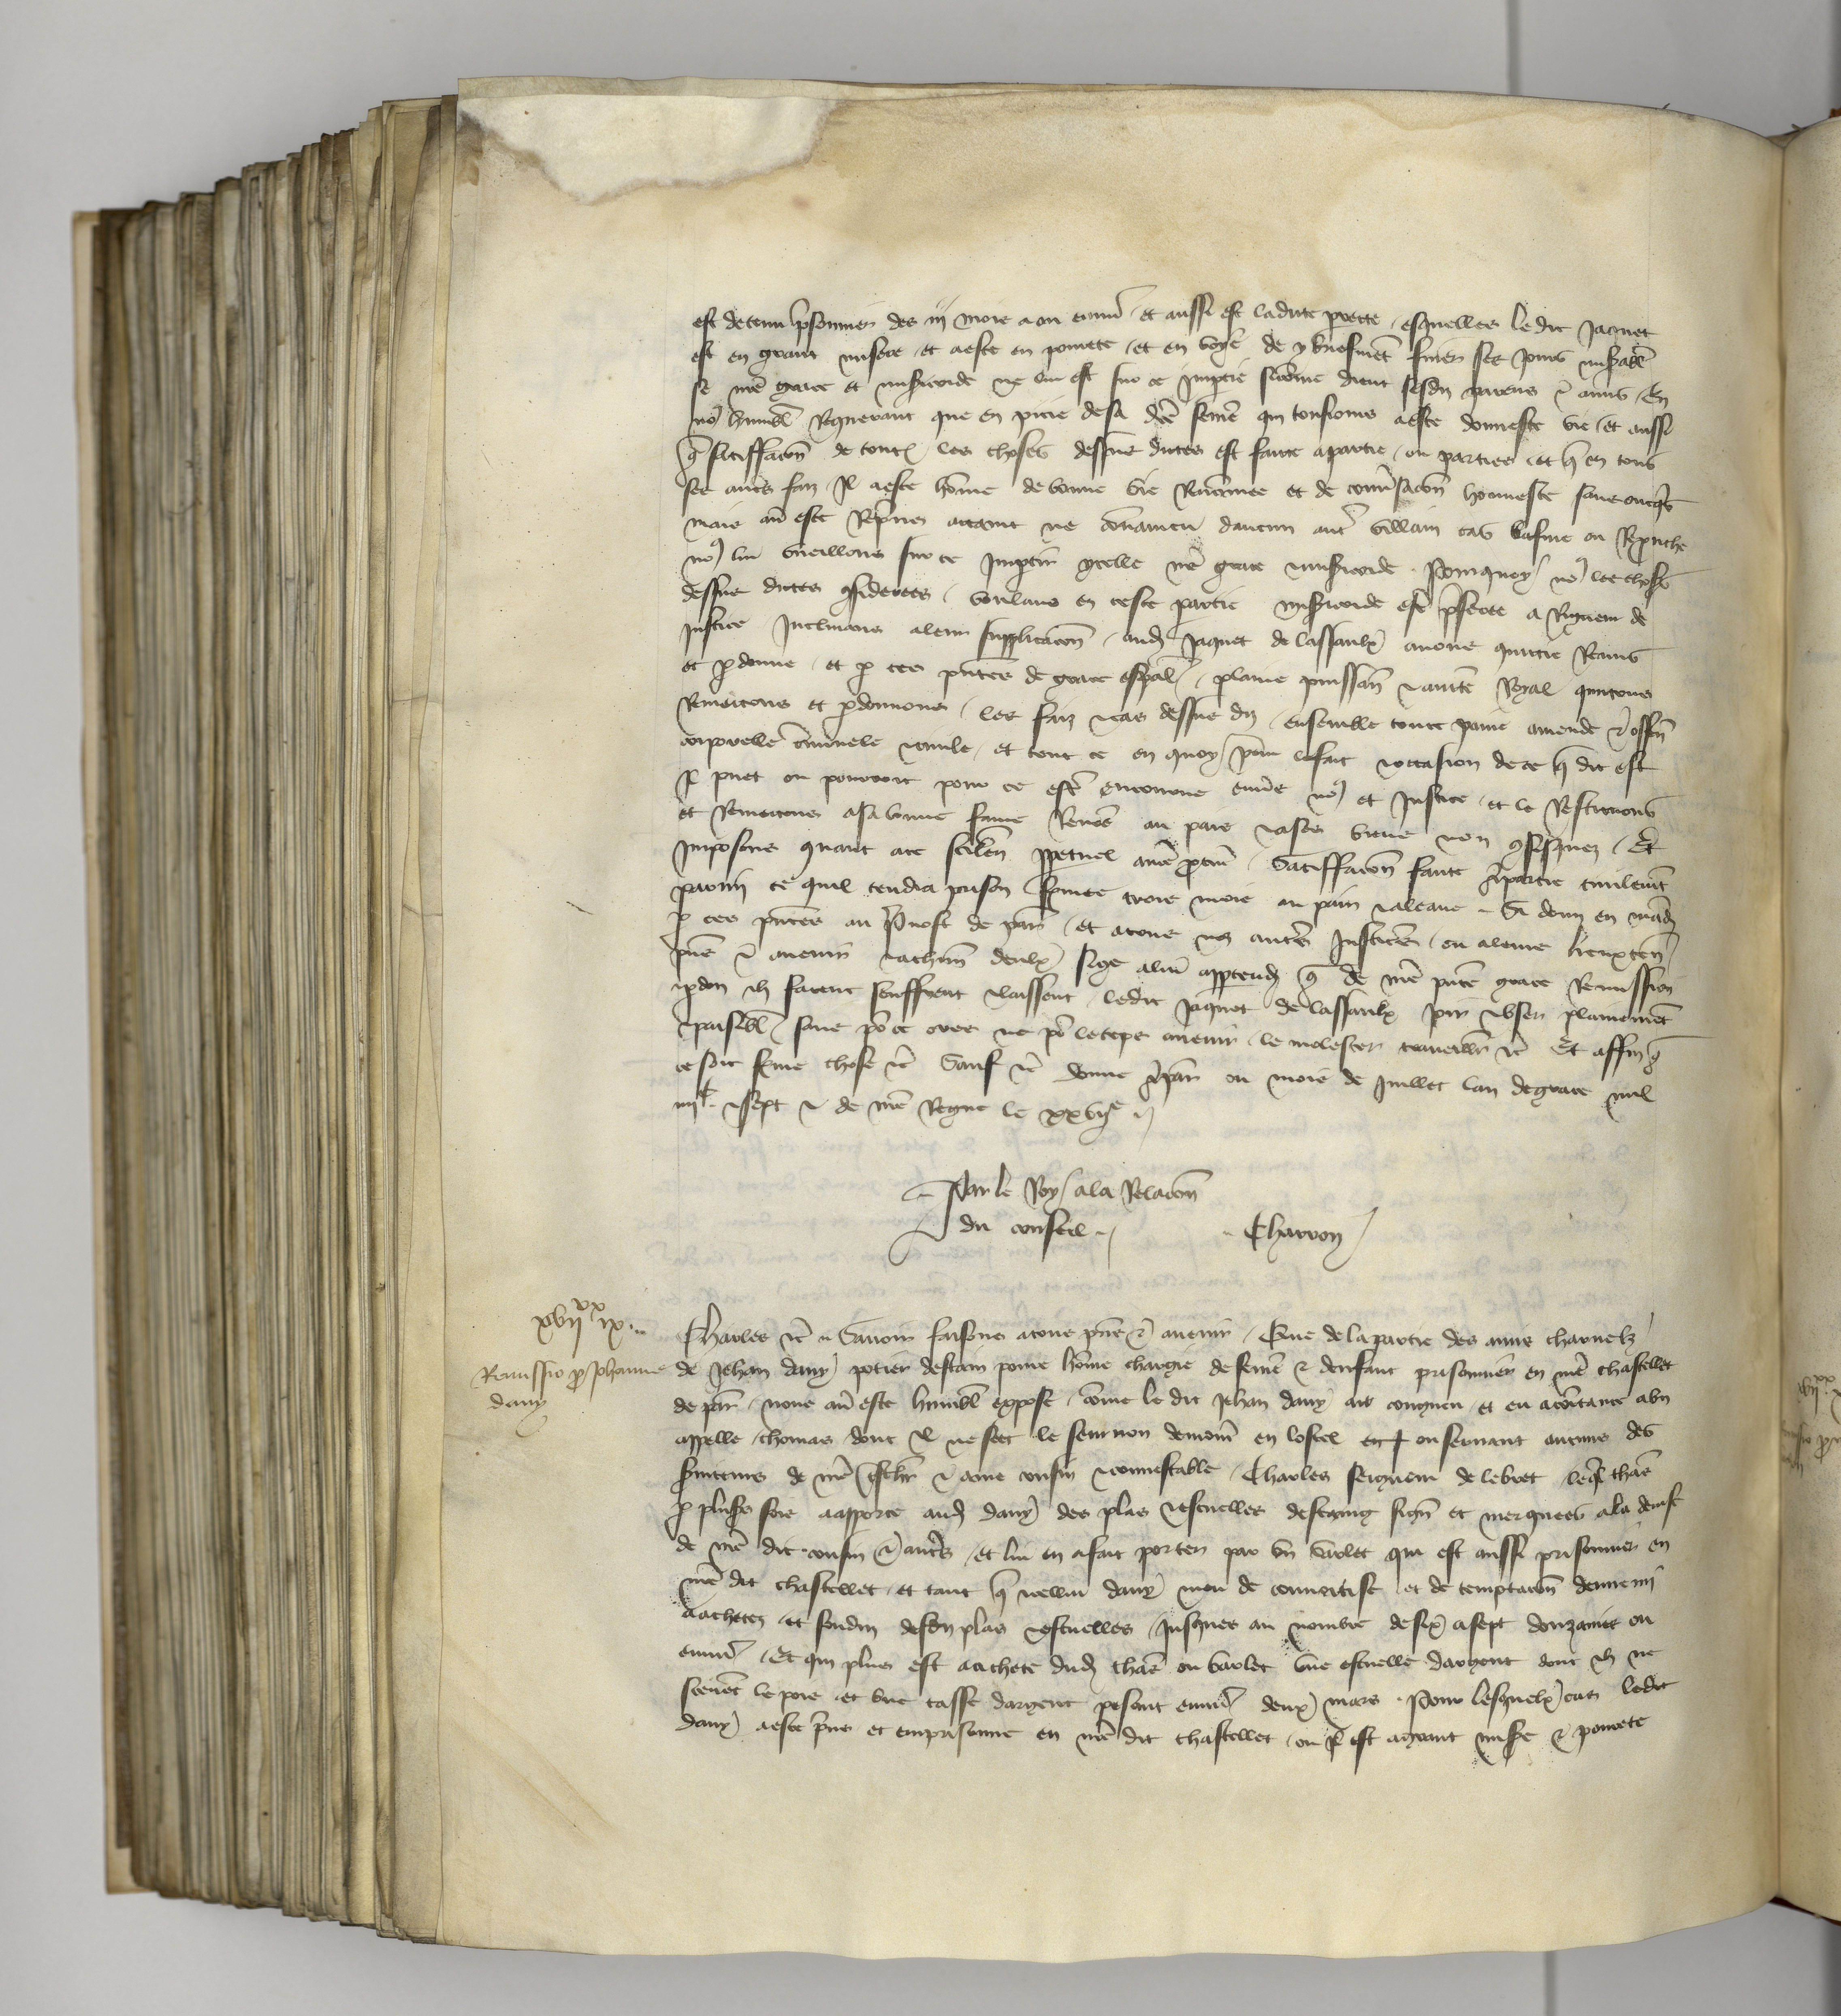 est detenu prisonnier des iij mois a ou enuiro et aussi est ladicte perrete esquelles le dit Jaquet
est en grant misere et a este en pourete et en voye de y briefmet finer ses jours misabl
se nre grace et misericorde ne lui est sur ce impartie sicome dient sesdis parens et amis En
no9 humbl Requerant que en pitie de sa dce feme qui tousiours a este donneste vie et aussi
q satiffacon de toutes les choses dessus dictes est faicte a partie ou parties et q en tous
ses autrs faiz Il a este home de bonne vie Renomee et de conuersacon honneste sans oncqs
mais au este Repris attaint ne conuaincu daucun autre villain cas blasme ou Reprouche
no9 lui vueillons sur ce impartir ycelle nre grace et misericorde Pourquoy no9 les choses
dessus dictes considerees voulans en ceste partie misericorde estre preferee a Rigueur de
justice Inclinans a leur supplicacon aud Jaquet de lassaulx auons quictie Remis
et pardonne et par ces pntes de grace espal plaine puissan et aucte Royal quictons
Remectons et pardonnons les faiz et cas dessus diz ensemble toute paine amende et offen
corporelle criminele et ciuile et tout ce en quoy pour le fait et occasion de ce q dit est
Il puet ou pourroit pour ce estre encouru enuers no9 et Justice et le Restituons
et Remectons a sa bonne fame Renoee au pais et a ses biens non confisquez Et
Imposons quant a ce scilen ppetuel a nre procur Satiffacon faicte a partie ciuilemt
parmi ce quil tendra prison fermee trois mois au pain et a leaue Si donn en mand
p ces pntes au Preuost de paris et a tous noz autres Justiciers ou a leurs lieuxten
pns et auenir et a chun deulx sicome a lui appartendra q de nre pnte grace Remission
et pardon ilz facent seuffrent et laissent ledit Jaquet de lassaulx joir et vser plainemet
et paisibl sans por ce ores ne por le teps auenir le molester traueillr etc Et affin q
ce soit ferme chose etc Sauf etc Donne a paris ou mois de Juillet lan de grace mil
iiiic et sept et de nre Regne le xxvije
Par le Roy a la Relacon
du conseil
Charron
xvii xx ix
Remissio pro Johanne
dany
Charles etc Sauoir faisons a tous pns et auenir Que de la partie des amis charnelz
de Jehan dany potier destain poure home chargie de feme et denfant prisonnier en nre chastellet
de paris nous au este humbl expose come le dit Jehan dany ait congneu et eu acointance a vn
appelle thomas dont Il ne scet le seurnon demour en lostel et ou seruant aucuns des
seruiteurs de nre treschier et ame cousin et connestable Charles seigneur de lebret leql thas
p pluss fois a apporte aud dany des plas et escuelles destaing signe et merquees a la deuise
de nre dit cousin et autrs et lui en a fait porter par vn varlet qui est aussi prisonnier en
nre dit chastellet et tant q icellui dany meu de conuoitise et de temptacon dennemi
a achetez et fondu desdiz plas et escuelles Jusques au nombre de six a sept douzaines ou
enuiro Et qui plus est a achete dud thas ou varlet vne escuelle dargent dont ilz ne
sceuet le pois et vne tasse dargent pesant enuiro deux mars Pour lesquelx cas ledit
dany a este prins et emprisonne en nre dit chastellet ou Il est a grant misere et pourete